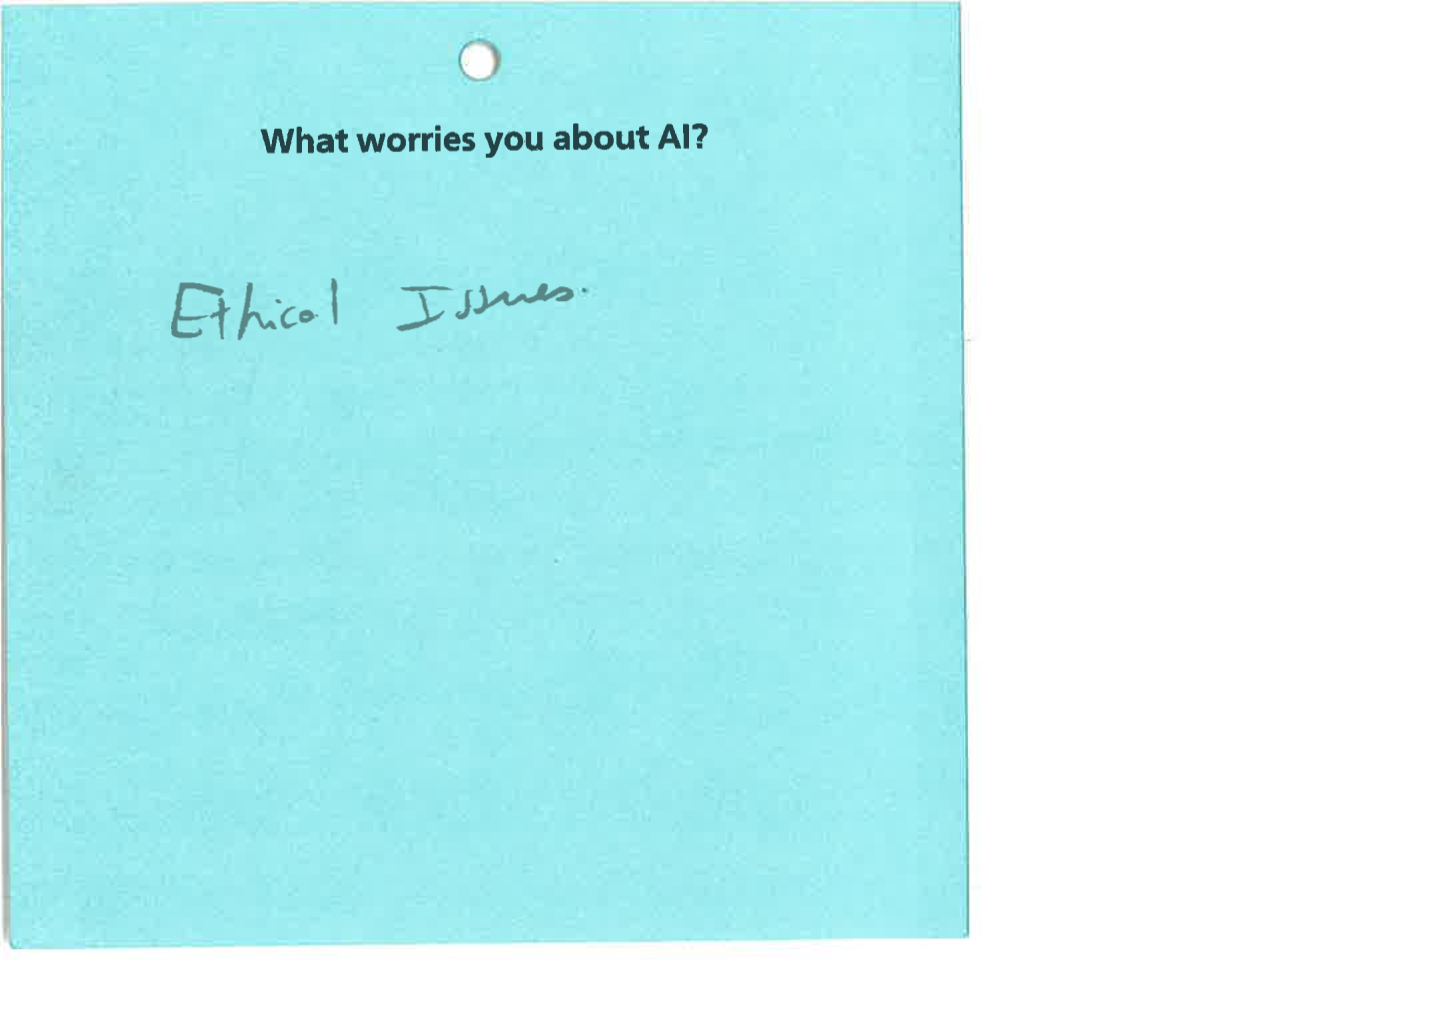 What worries you about AI?
Ethical Issues.